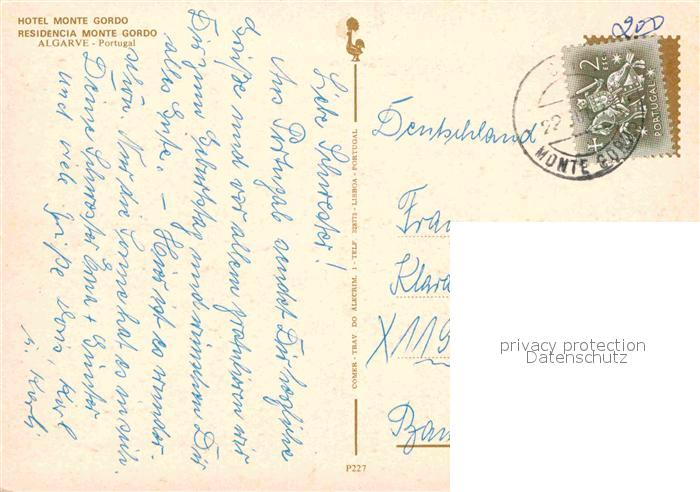 HOTEL MONTE GORDO
RESIDENCIA MONTE GORDO
ALGARVE - Portugal
Liebe Schwester!
Aus Portugal sendet Dir herzliche
Grüße und vor allem gratulieren wir
Dir zum Geburtstag und wünschen Dir
alles Gute. – Hier ist es wunder-
schön. Nur die Sonne hat es in sich.
Deine Schwester + Günter
und viele Grüße Doris, Karl
u. 
COMER - TRAV DO ALECRIM, 1 - TELF 328775 - LISBOA - PORTUGAL
P227
200
2 ESC
PORTUGAL
22
MONTE GORDO
Deutschland
Frau
Klara
X119
privacy protection
Datenschutz